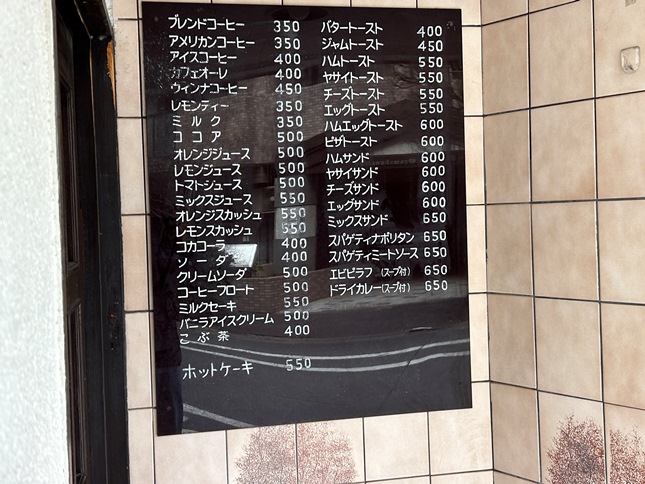 ブレンドコーヒー 350
アメリカンコーヒー 350
アイスコーヒー 400
カフェオーレ 400
ウィンナコーヒー 450
レモンティー 350
ミルク 350
ココア 500
オレンジジュース 500
レモンジュース 500
トマトジュース 500
ミックスジュース 550
オレンジスカッシュ 550
レモンスカッシュ 550
コカコーラ 400
ソーダ 400
クリームソーダ 500
コーヒーフロート 500
ミルクセーキ 550
バニラアイスクリーム 500
こぶ茶 400
ホットケーキ 550
バタートースト 400
ジャムトースト 450
ハムトースト 550
ヤサイトースト 550
チーズトースト 550
エッグトースト 550
ハムエッグトースト 600
ピザトースト 600
ハムサンド 600
ヤサイサンド 600
チーズサンド 600
エッグサンド 600
ミックスサンド 650
スパゲティナポリタン 650
スパゲティミートソース 650
エビピラフ(スープ付) 650
ドライカレー(スープ付) 650